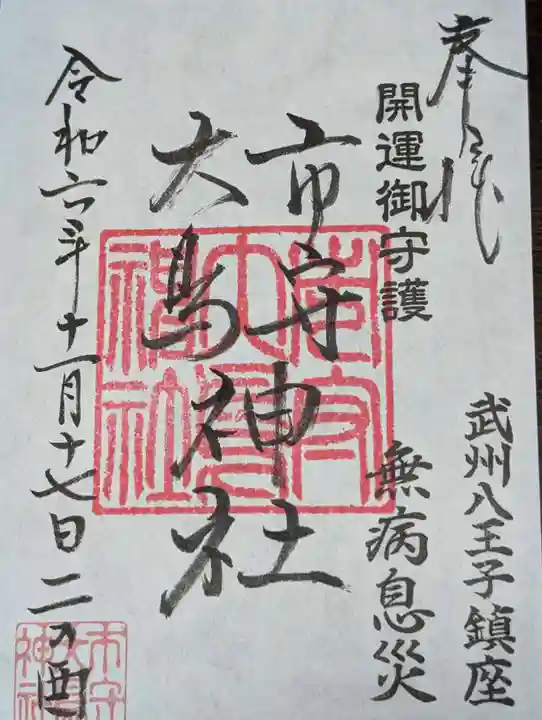 奉拝
開運御守護
武州八王子鎮座
無病息災
市守
大鳥
神社
令和六年十一月十七日 二の酉
市守大鳥神社